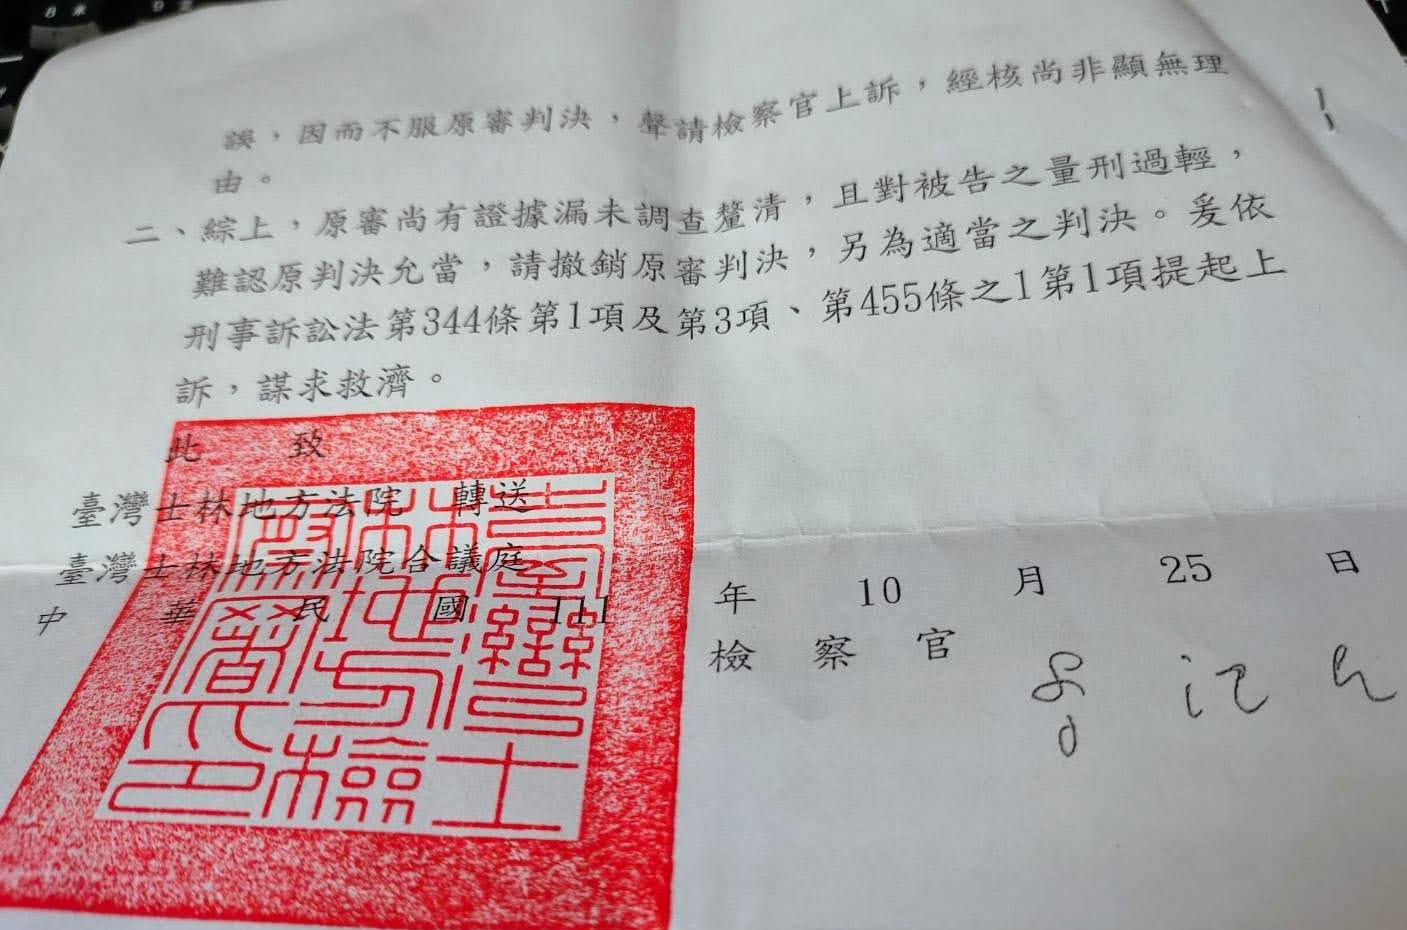 誤，因而不服原審判決，聲請檢察官上訴，經核尚非顯無理
由。
二、綜上，原審尚有證據漏未調查釐清，且對被告之量刑過輕，
難認原判決允當，請撤銷原審判決，另為適當之判決。爰依
刑事訴訟法第344條第1項及第3項、第455條之1第1項提起上
訴，謀求救濟。
此 致
臺灣士林地方法院 轉送
臺灣士林地方法院合議庭
中 華 民 國 111 年 10 月 25 日
檢 察 官
臺灣士林地方檢察署印